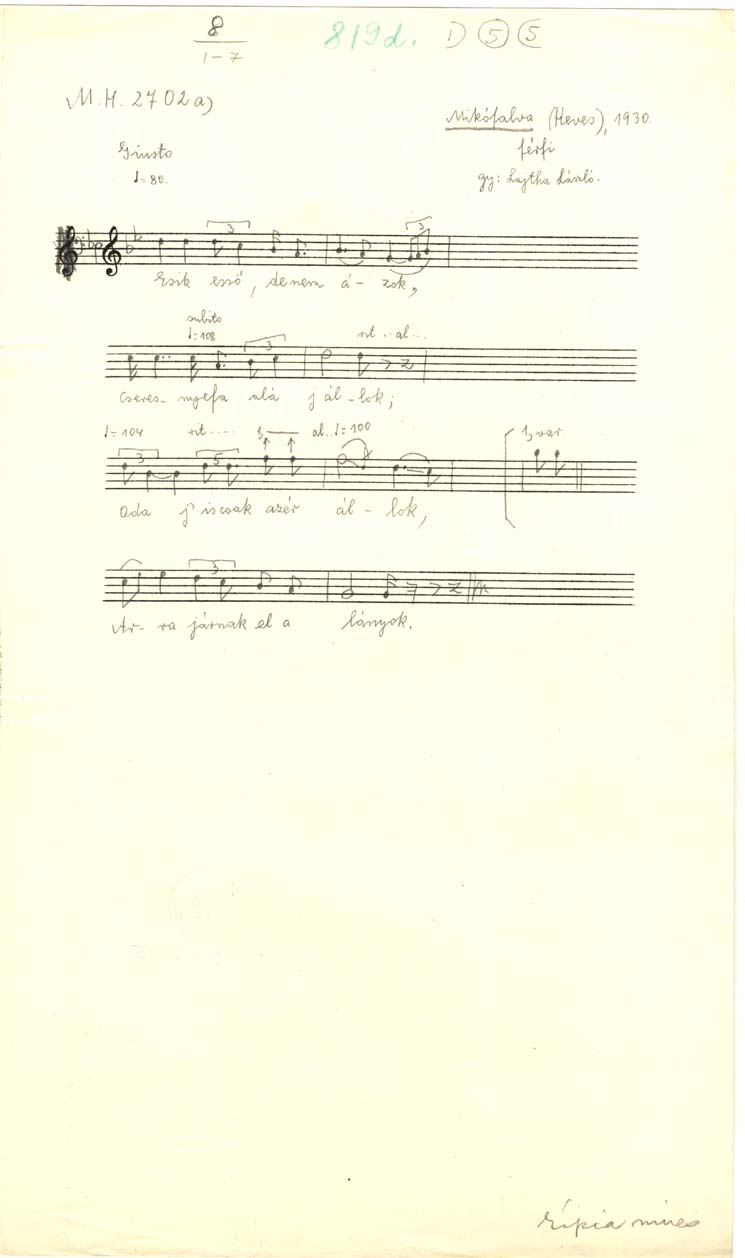 8
1-7
819d. 1) 5 5
M.H. 2702a)
Mikófalva (Heves), 1930.
férfi
gy: Lajtha László.
Giusto
♩=80.
3 3
Esik esső, de nem á- zok,
subito
♩=108 rit.. al...
3
Cseres- nyefa alá j ál-lok;
♩=104 rit.... 1, al..♩=100 1, var.
3 5
Oda j' iscsak azér ál - lok,
3
Ar- ra járnak el a lányok.